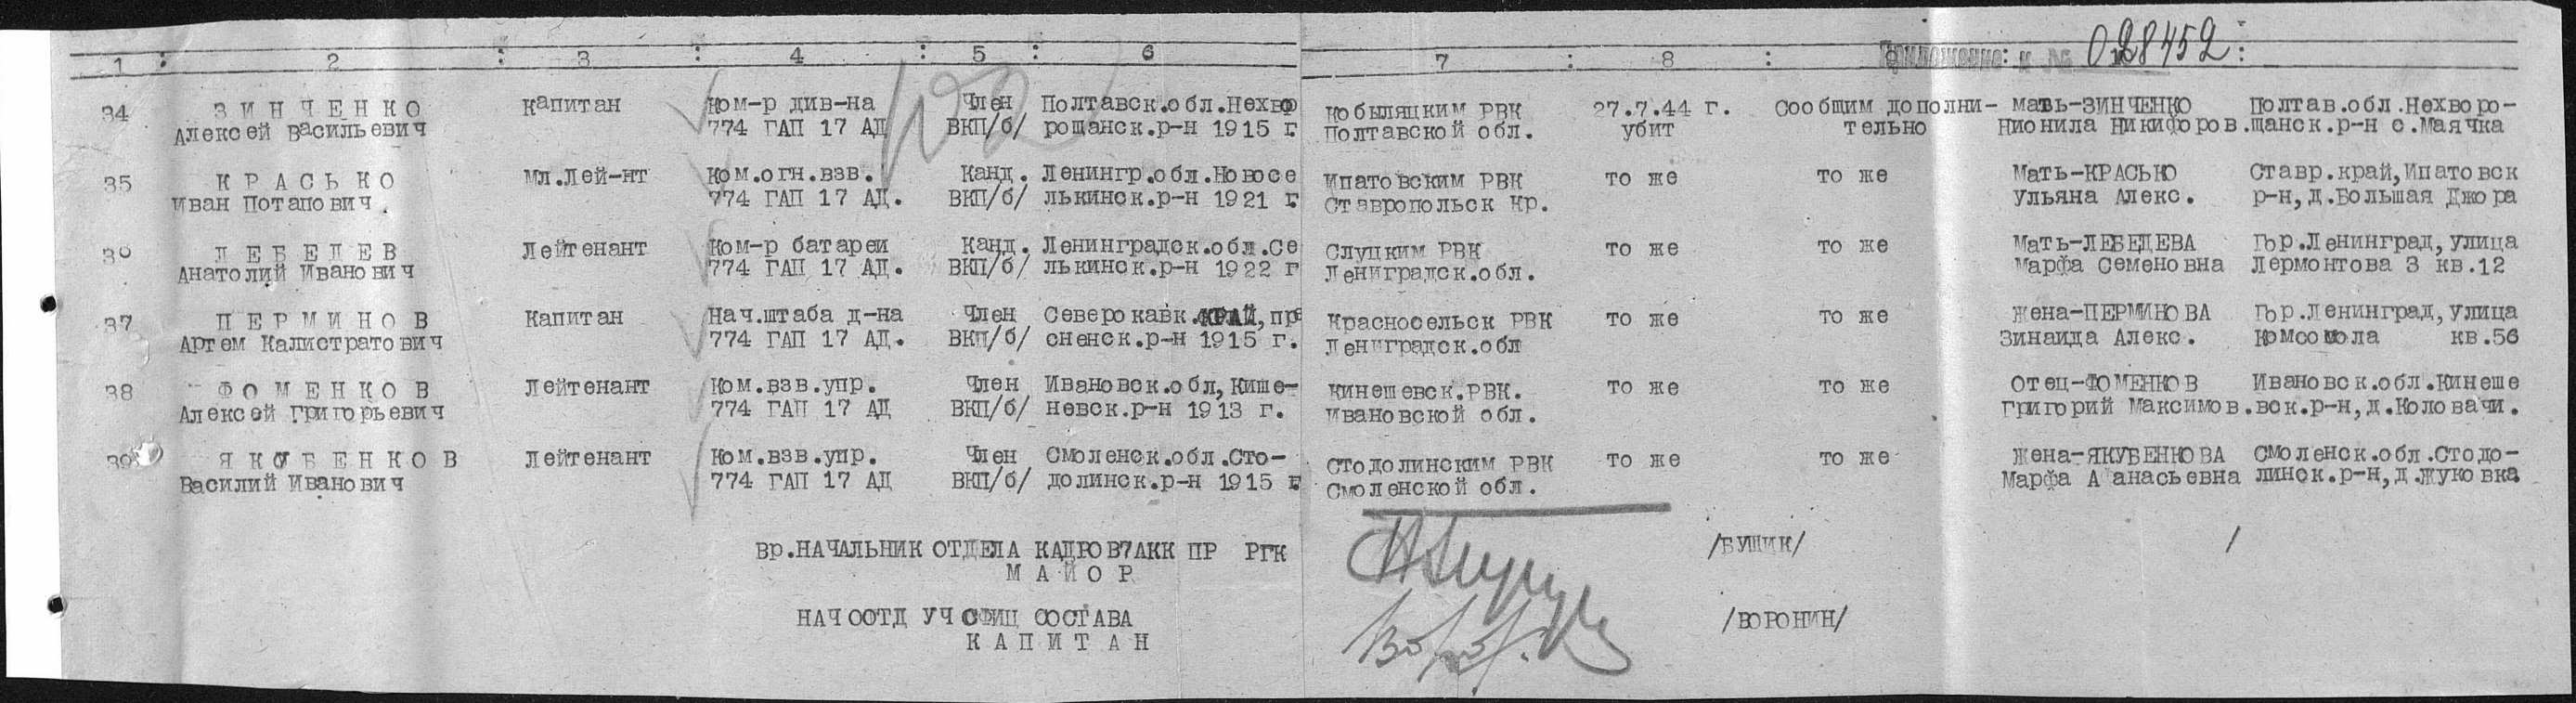 Приложение к № 028452
1 : 2 : 3 : 4 : 5 : 6 7 : 8 : 9 :
34 ЗИНЧЕНКО капитан Ком-р див-на Член Полтавск.обл.Нехво Кобыляцким РВК 27.7.44 г. Сообщим дополни- Мать-ЗИНЧЕНКО Полтав.обл.Нехворо-
Алексей Васильевич 774 ГАП 17 АД ВКП/б/ рощанск.р-н 1915 г. Полтавской обл. убит тельно Нионила Никифоров.щанск.р-н с.Маячка
35 КРАСЬКО Мл.Лей-нт Ком.огн.взв. Канд. Ленингр.обл.Новосе Ипатовским РВК то же то же Мать-КРАСЬКО Ставр.край,Ипатовск
Иван Потапович. 774 ГАП 17 АД. ВКП/б/ лькинск.р-н 1921 г. Ставропольск Кр. Ульяна Алекс. р-н,д.Большая Джора
36 ЛЕБЕДЕВ Лейтенант Ком-р батареи Канд. Ленинградск.обл.Се Слуцким РВК то же то же Мать-ЛЕБЕДЕВА Гор.Ленинград,улица
Анатолий Иванович 774 ГАП 17 АД. ВКП/б/ лькинск.р-н 1922 г Лениградск.обл. Марфа Семеновна Лермонтова 3 кв.12
37 ПЕРМИНОВ Капитан Нач.штаба д-на Член Северокавк.КРАЙ,пре Красносельск РВК то же то же Жена-ПЕРМИНОВА Гор.Ленинград,улица
Артем Калистратович 774 ГАП 17 АД. ВКП/б/ сненск.р-н 1915 г. Лениградск.обл Зинаида Алекс. Комсомола кв.56
38 ФОМЕНКОВ Лейтенант Ком.взв.упр. Член Ивановск.обл,Кише- Кинешевск.РВК. то же то же Отец-ФОМЕНКОВ Ивановск.обл.Кинеше
Алексей Григорьевич 774 ГАП 17 АД ВКП/б/ невск.р-н 1913 г. Ивановской обл. Григорий Максимов.вск.р-н,д.Коловачи.
39 ЯКУБЕНКОВ Лейтенант Ком.взв.упр. Член Смоленск.обл.Сто- Стодолинским РВК то же то же Жена-ЯКУБЕНКОВА Смоленск.обл.Стодо-
Василий Иванович 774 ГАП 17 АД ВКП/б/ долинск.р-н 1915 г. Смоленской обл. Марфа А анасьевна линск.р-н,д.Жуковка
Вр.НАЧАЛЬНИК ОТДЕЛА КАДРОВ7АКК ПР РГК /БУЩИК/
МАЙОР
НАЧ ООТД УЧ ОФИЦ СОСТАВА /ВОРОНИН/
КАПИТАН